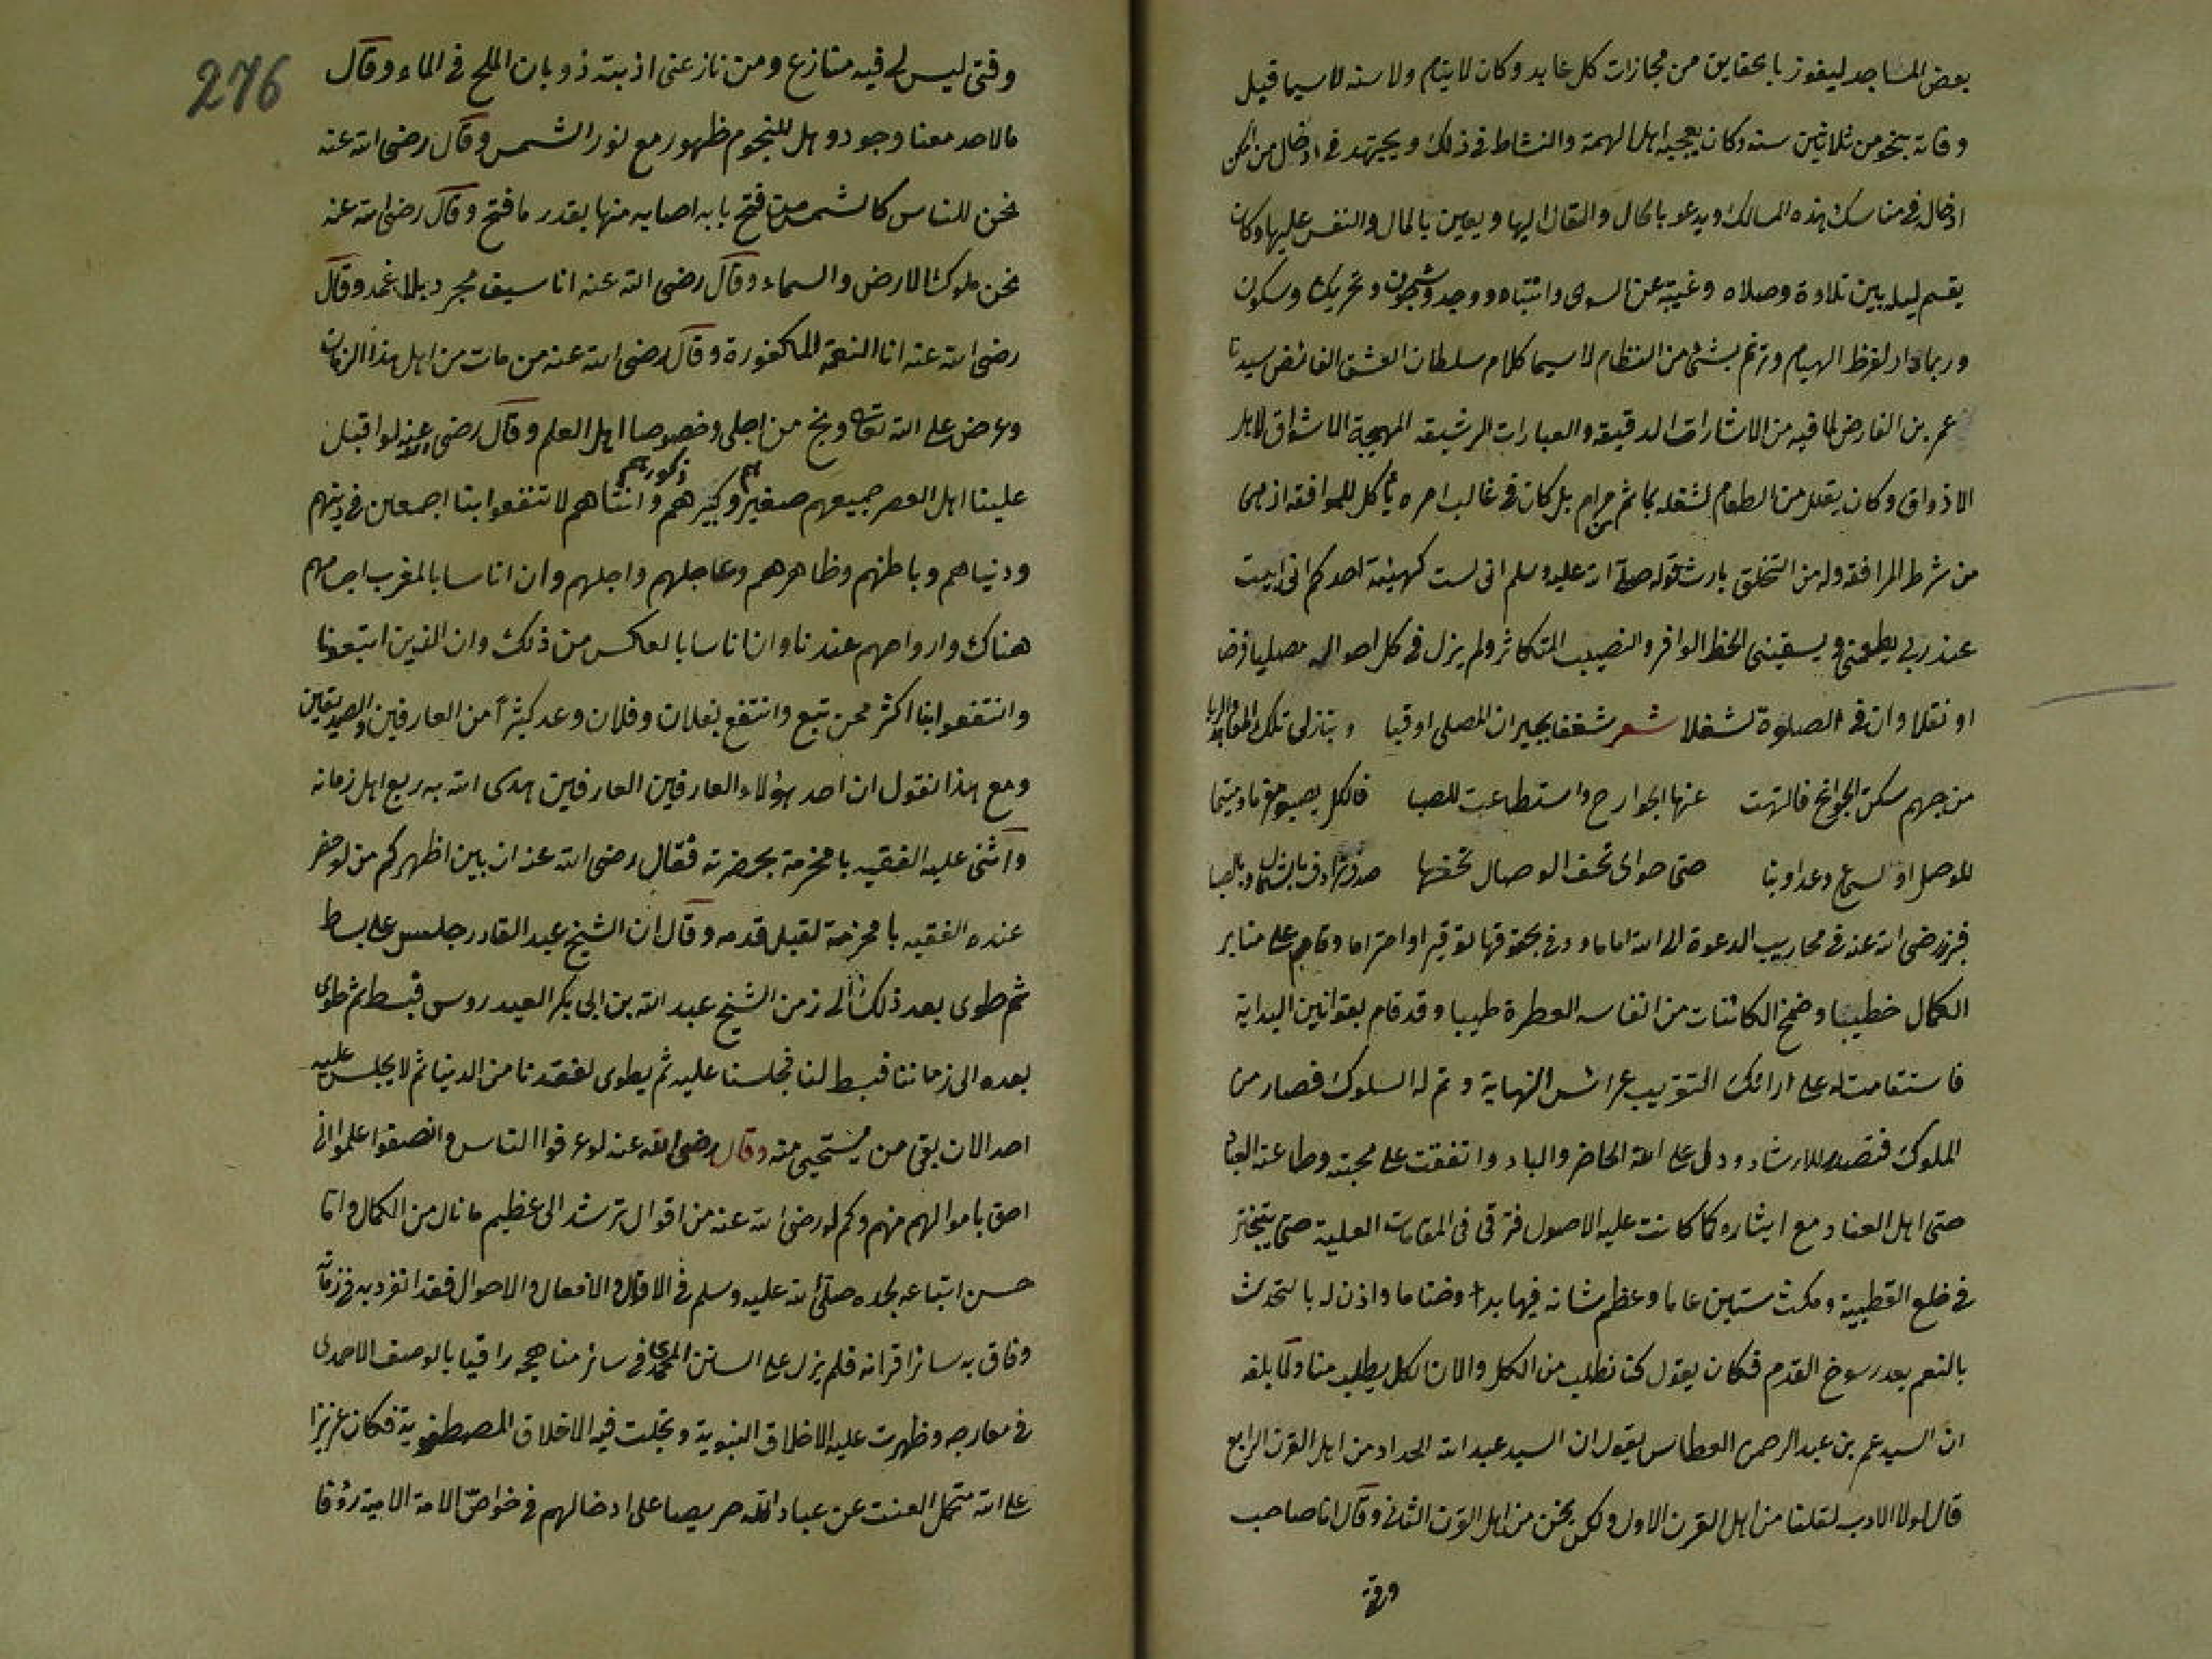 بعض المساجد ليفوز بالحقايق من مجازات كل عابد وكان لا ينام ولا سنه لا سيما قبيل
وفاته بنحو من ثلاثين سنه وكان يعجبه اهل الهمة والنشاط في ذلك ويجتهد في ادخال من امكن
ادخاله في مناسك هذه المسالك ويدعو بالحال والمقال اليها ويعين بالمال والنفس عليها وكان
يقسم ليله بين تلاوة وصلاه وغيبة عن السوى وانتباه ووجد وشجون وتحريك وسكون
وربما دار لفرط الهيام وترنم بشئ من النظام لا سيما كلام سلطان العشق الفائض سيدنا
عمر بن الفارض لما فيه من الاشارات الدقيقه والعبارات الرشيقه المهيجة الاشواق لاهل
الاذواق وكان يقلل من الطعام لشغله بما ثم من مرام بل كان في غالب امره يأكل للموافقه اذ هى
من شرط المرافقه وله من التخلق بارث قوله صلى الله عليه وسلم انى لست كهيئة احدكم انى ابيت
عند ربي يطعمنى ويسقينى الحظ الوافر والنصيب المتكاثر ولم يزل في كل احواله مصليا فرضا
او نفلا وان في الصلوة لشغلا شعر شغفا بجيران المصلى او قبا وبنازلى تلك المعاهد والربا
من حبهم سكن الجوانح فالتهت عنها الجوارح واستطاعت للصبا فالكل يصبو مغرما ومتيما
للوصل او السجع دعداوبنا حتى حوا تحف الوصال تحفها صدق ترادف بالشمال وبالصبا
فبرز رضى الله عنه في محاريب الدعوة الى الله اماما ووفى بحقوقها توقيرا واحتراما وقام على منابر
الكمال خطيبا وضمخ الكائنات من انفاسه العطرة طيبا وقد قام بقوانين البداية
فاستقامت له على ارائك التقريب عرائس النهاية وتم له السلوك فصار من
الملوك فتصدر للارشاد ودل على الله الحاضر والباد واتفقت على محبته وطاعته العباد
حتى اهل العناد مع ايثاره كما كانت عليه الاصول فترقى في المقامات العلية حتى تبختر
في خلع القطبية ومكث ستين عاما وعظم شانه فيها بدأ وختاما واذن له بالتحدث
بالنعم بعد رسوخ القدم فكان يقول كنا نطلب من الكل والان الكل يطلب منا ولما بلغه
ان السيد عمر بن عبد الرحمن العطاس يقول ان السيد عبد الله الحداد من اهل القرن الرابع
قال لولا الادب لقلنا من اهل القرن الاول ولكن نحن من اهل القرن الثانى وقال انا صاحب
وقتى
276
وقتى ليس لى فيه منازع ومن نازعنى اذبته ذوبان الملح في الماء وقال
ما لاحد معنا وجود وهل للنجوم ظهور مع نور الشمس وقال رضى الله عنه
نحن للناس كالشمس من فتح بابه اصابه منها بقدر ما فتح وقال رضى الله عنه
نحن ملوك الارض والسماء وقال رضى الله عنه انا سيف مجرد بلا غمد وقال
رضى الله عنه انا النعمة المكفورة وقال رضى الله عنه من مات من اهل هذا الزمان
وعرض على الله تعالى وبخ من اجلى وخصوصا اهل العلم وقال رضى عنه لو اقبل
علينا اهل العصر جميعهم صغيرهم وكبيرهم ذكورهم وانثاهم لانتفعوا بنا اجمعين في دينهم
ودنياهم وباطنهم وظاهرهم وعاجلهم واجلهم وان اناسا بالمغرب اجسامهم
هناك وارواحهم عندنا وان اناسا بالعكس من ذلك وان الذين اتبعونا
وانتفعوا بنا اكثر ممن تبع وانتفع بفلان وفلان وعد كثيراً من العارفين والصديقين
ومع هذا نقول ان احد هؤلاء العارفين العارفين هدى الله به ربع اهل زمانه
واثنى عليه الفقيه بامخرمة بحضرته فقال رضى الله عنه ان بين اظهركم من لو حضر
عنده الفقيه بامخرمة لقبل قدمه وقال ان الشيخ عبد القادر جلس على بساط
ثم طوى بعد ذلك الى زمن الشيخ عبد الله بن ابى بكر العيدروس فبسط ثم طوى
بعده الى زماننا فبسط لنا فجلسنا عليه ثم يطوى لفقدنا من الدنيا ثم لا يجلس عليه
احد الان بقى من يستحيى منه وقال رضى الله عنه لو عرفوا الناس وانصفوا علموا انى
احق باموالهم منهم وكم له رضى الله عنه من اقوال ترشد الى عظيم ما نال من الكمال واما
حسن اتباعه لجده صلى الله عليه وسلم في الاقوال والافعال والاحوال فقد انفرد به في زمانه
وفاق به سائر اقرانه فلم يزل على السنن المحمدى في سائر مناهجه راقيا بالوصف الاحمدى
في معارجه وظهرت عليه الاخلاق النبوية وتجلت فيه الاخلاق المصطفوية فكان عزيزا
على الله متحمل العنت عن عباد الله حريصا على ادخالهم في خواصّ الامة الامية رؤفا